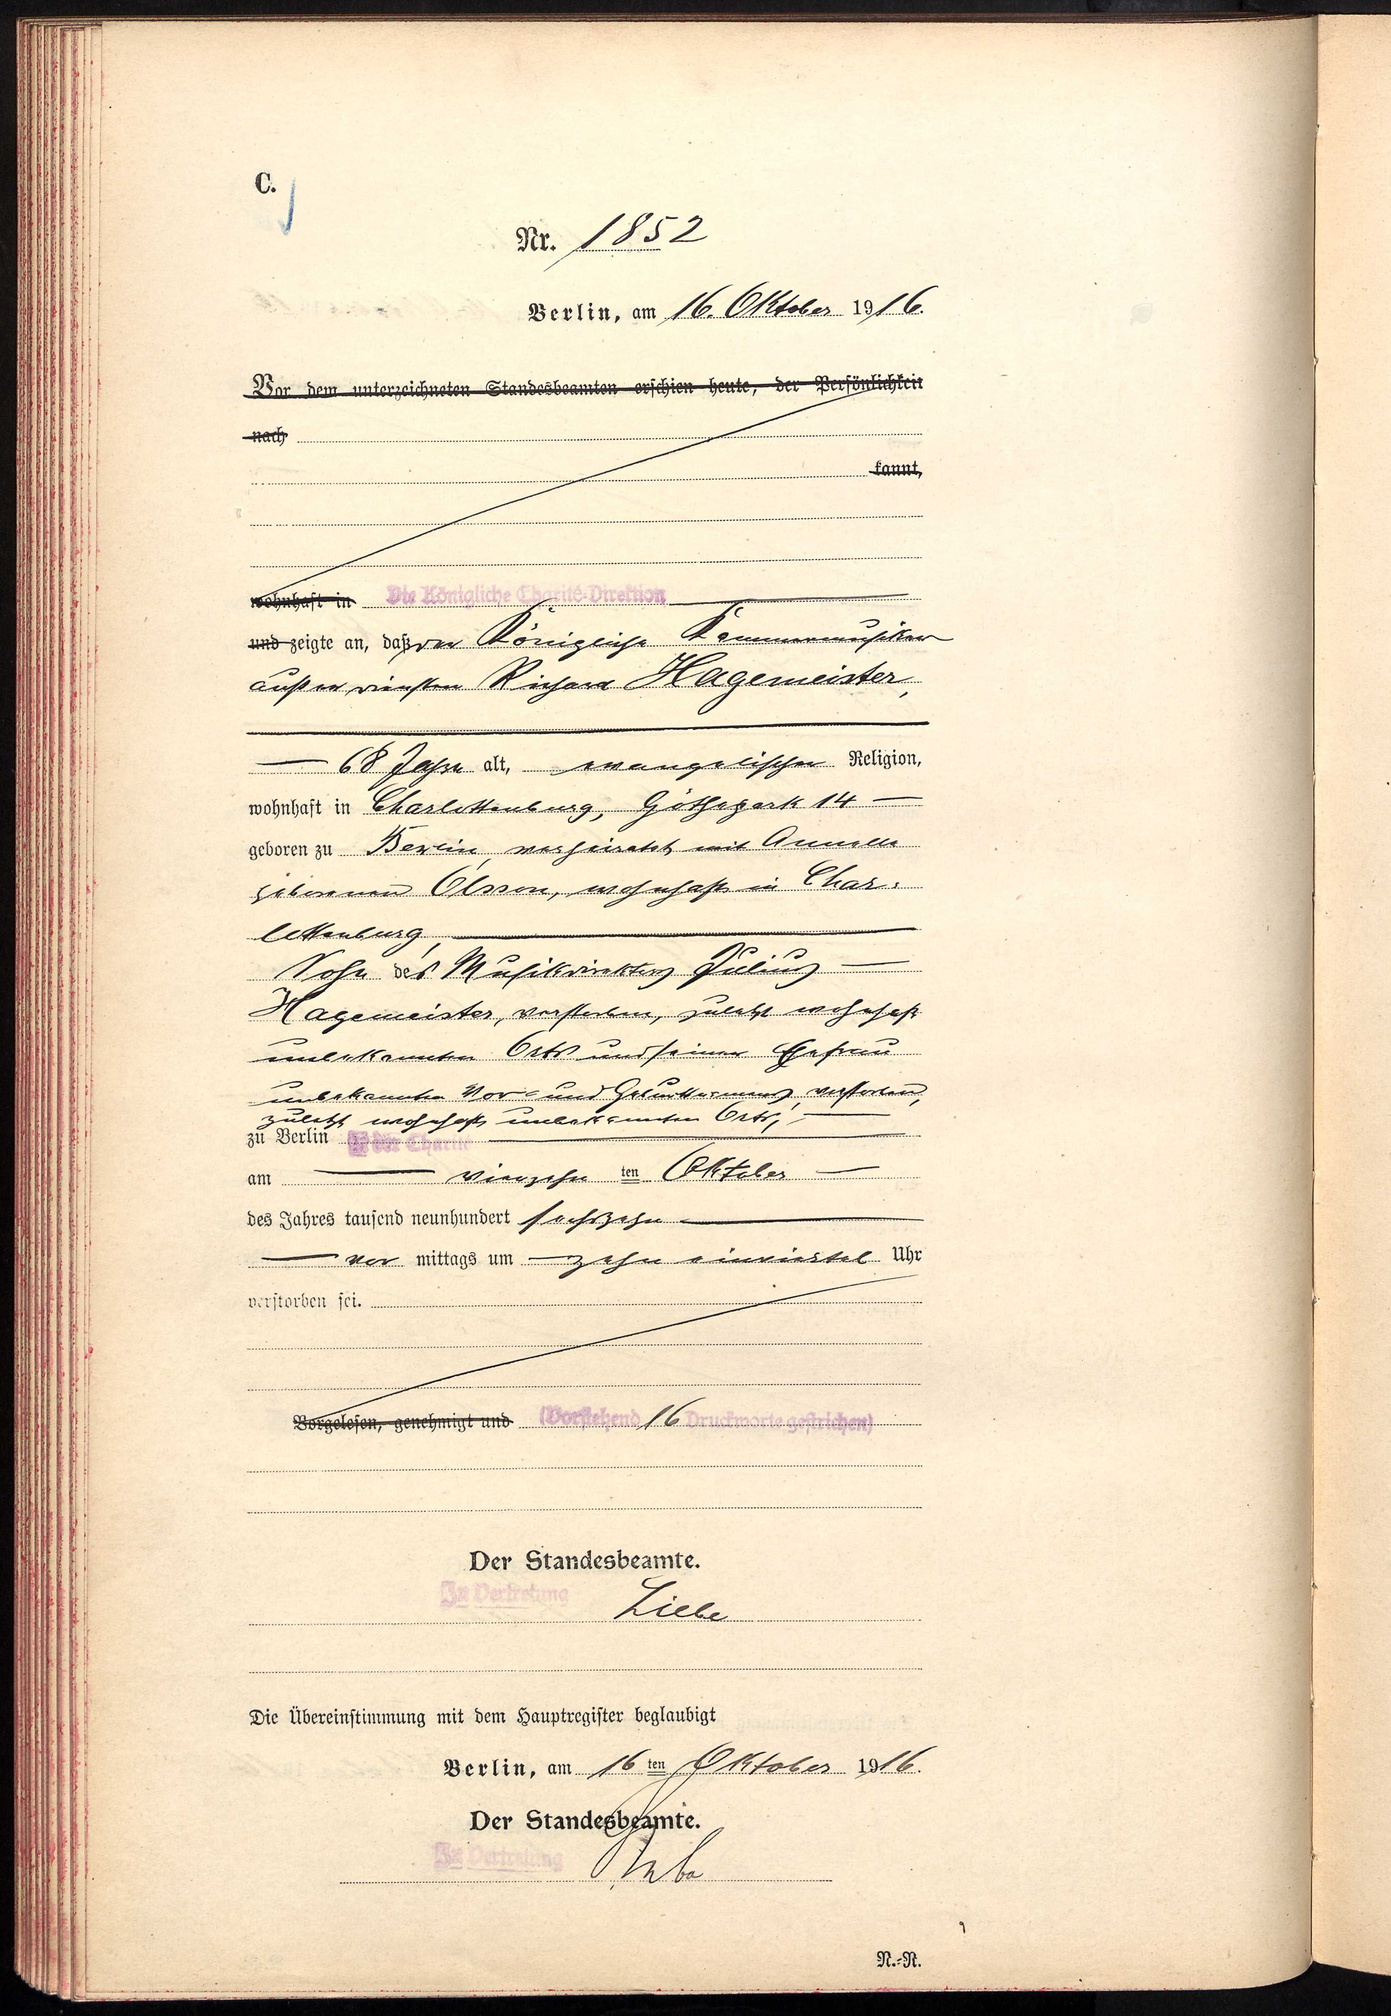 C.
Nr. 1852
Berlin, am 16. Oktober 1916.
Vor dem unterzeichneten Standesbeamten erschien heute, der Persönlichkeit
nach
kannt,
wohnhaft in Die Königliche Charité-Direktion
und zeigte an, daß der Königliche Kammermusiker
außer Diensten Richard Hagemeister,
68 Jahre alt, evangelischer Religion,
wohnhaft in Charlottenburg, Göthepark 14
geboren zu Berlin, verheiratet mit
geborenen Olsson, wohnhaft in Char-
lottenburg,
Sohn des Musikdirektors Julius
Hagemeister, verstorben, zuletzt wohnhaft
unbekannten Orts und seiner Ehefrau
unbekannten Vor- und Geburtsnamens, verstorben,
zuletzt wohnhaft unbekannten Orts,
zu Berlin in der Charité
am vierzehnten Oktober
des Jahres tausend neunhundert sechszehn
vor mittags um zehn einviertel Uhr
verstorben sei.
Vorgelesen, genehmigt und (Vorstehend 16 Druckworte gestrichen)
Der Standesbeamte.
In Vertretung
Liebe
Die Übereinstimmung mit dem Hauptregister beglaubigt
Berlin, am 16 ten Oktober 1916.
Der Standesbeamte.
In Vertretung
N.-N.